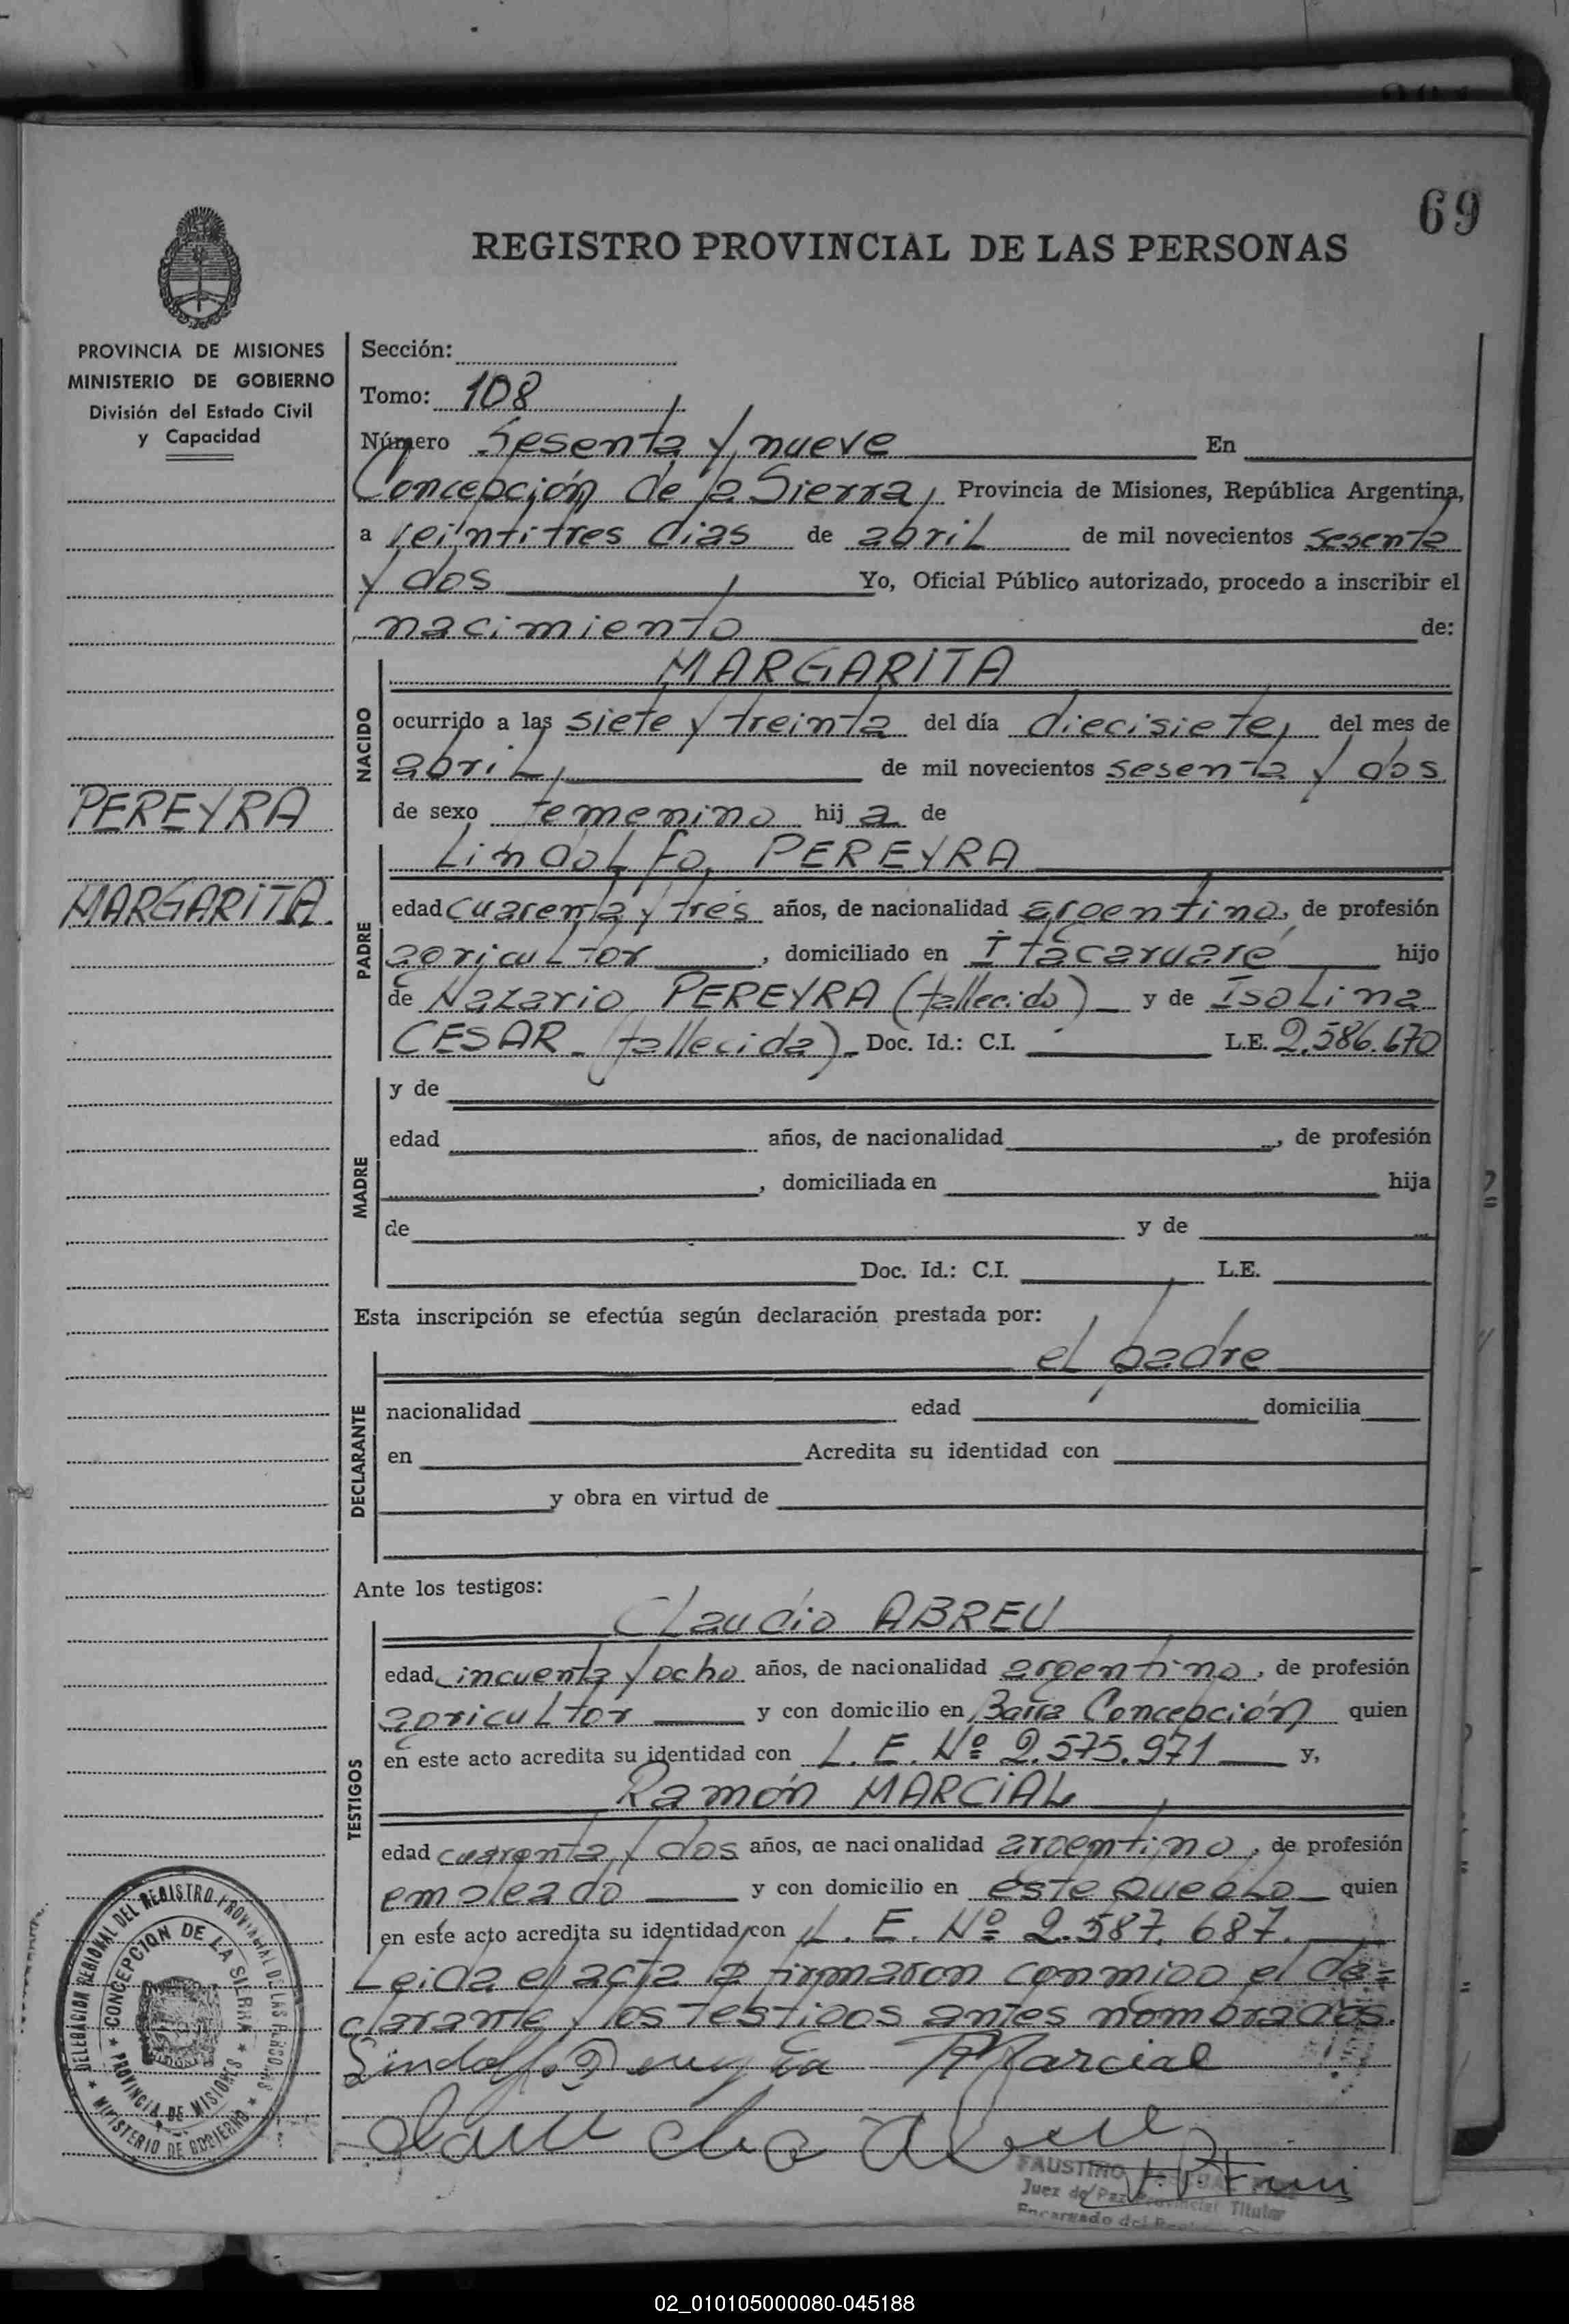 69
REGISTRO PROVINCIAL DE LAS PERSONAS
PROVINCIA DE MISIONES
MINISTERIO DE GOBIERNO
División del Estado Civil
y Capacidad
PEREYRA
MARGARITA
Sección:
Tomo: 108
Número Sesenta y nueve En
Concepción de la Sierra, Provincia de Misiones, República Argentina,
a veintitres dias de abril de mil novecientos sesenta
y dos Yo, Oficial Público autorizado, procedo a inscribir el
nacimiento de:
NACIDO
MARGARITA
ocurrido a las siete y treinta del día diecisiete, del mes de
abril, de mil novecientos sesenta y dos
de sexo femenino hij a de
PADRE
Lindolfo PEREYRA
edad cuarenta y tres años, de nacionalidad argentino, de profesión
agricultor, domiciliado en Itacaruaré hijo
de Nazario PEREYRA (fallecido) y de Isolina
CESAR (fallecida) Doc. Id.: C.I. L.E. 2.586.670
MADRE
y de
edad años, de nacionalidad , de profesión
, domiciliada en hija
de y de
Doc. Id.: C.I. L.E.
Esta inscripción se efectúa según declaración prestada por:
DECLARANTE
el padre
nacionalidad edad domicilia
en Acredita su identidad con
y obra en virtud de
Ante los testigos:
TESTIGOS
Claudio ABREU
edad cincuenta y ocho años, de nacionalidad argentino, de profesión
agricultor y con domicilio en Barra Concepción quien
en este acto acredita su identidad con L. E. Nº 2.575.971 y,
Ramón MARCIAL
edad cuarenta y dos años, de nacionalidad argentino, de profesión
empleado y con domicilio en este pueblo quien
en este acto acredita su identidad con L. E. Nº 2.587.687.
Leida el acta la firmaron conmigo el de=
clarante y los testigos antes nombrados.
Lindolfo Marcial
DELEGACION REGIONAL DEL REGISTRO PROVINCIAL DE LAS PERSONAS
CONCEPCION DE LA SIERRA
PROVINCIA DE MISIONES
MINISTERIO DE GOBIERNO
FAUSTINO
Juez de Paz Provincial Titular
Encargado del
02_010105000080-045188